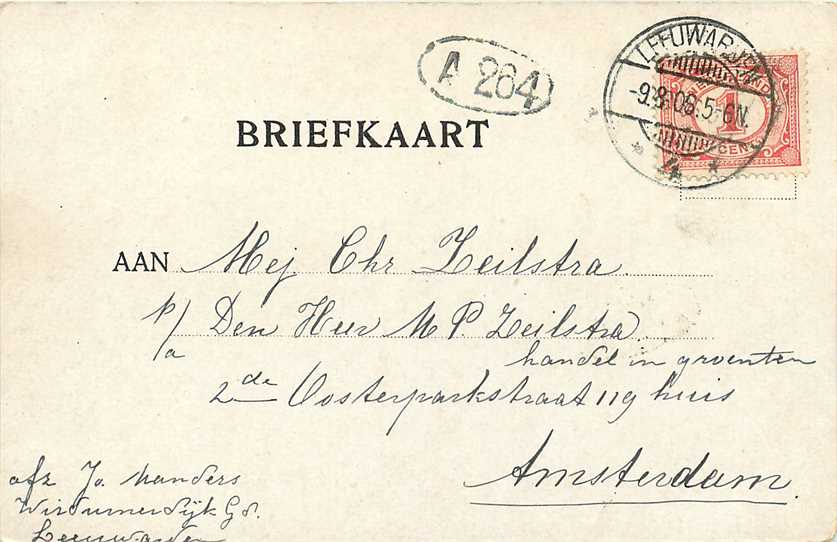 A 264
LEEUWARDEN
-9.8.08.5-6N.
4
NEDERLAND
1
CENT
BRIEFKAART
AAN Mej Chr Zeilstra
p/a Den Heer M P. Zeilstra
handel in groenten
2de Oosterparkstraat 119 huis
Amsterdam.
afz Jo. Manders
Wirdumerdijk
Leeuwarden